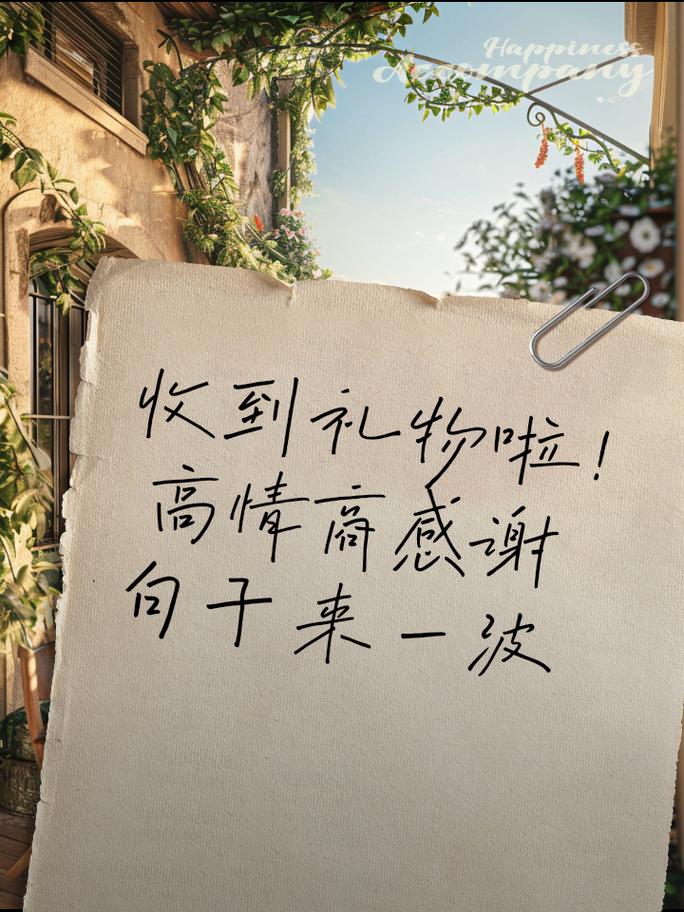 Happiness
Accompany
收到礼物啦！
高情商感谢
句子来一波